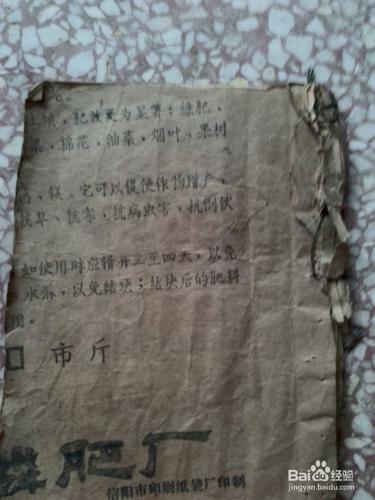 土壤，肥效更为显著；绿肥，
、棉花、油菜、烟叶、果树
、镁。它可以促使作物增产、
抗旱、抗寒、抗病虫害、抗倒伏
如使用时应错开三至四天，以免
水淋，以免结块；结块后的肥料
用。
市斤
磷肥厂
信阳市印刷纸袋厂印制
Baidu经验
jingyan.baidu.com